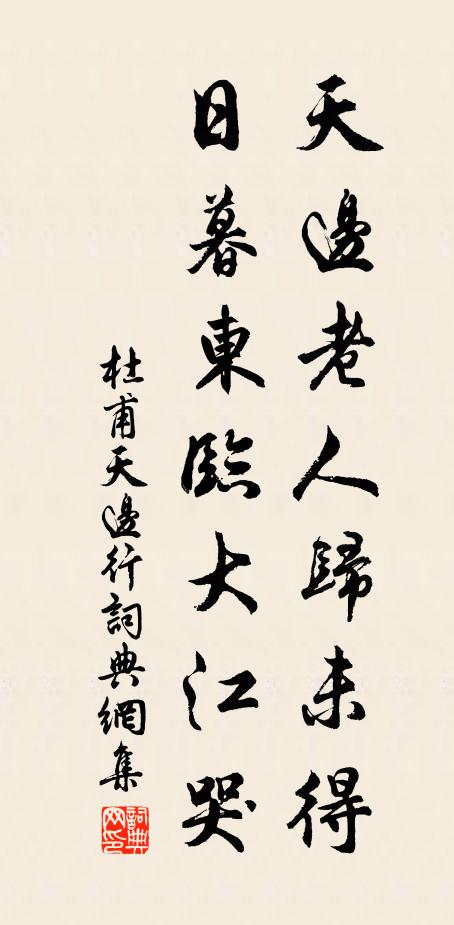 天邊老人歸未得
日暮東臨大江哭
杜甫天邊行詞典網集
詞典網印